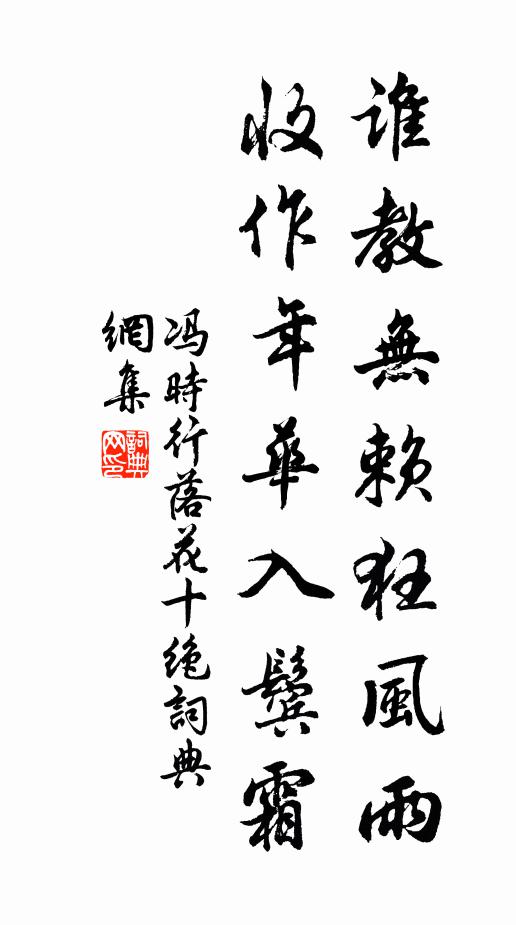 谁教無賴狂風雨
收作年華入鬓霜
冯時行落花十绝詞典
網集
詞典網印